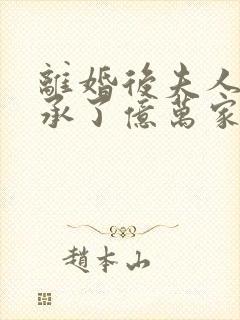 離婚後夫人
承了億萬家
趙本山